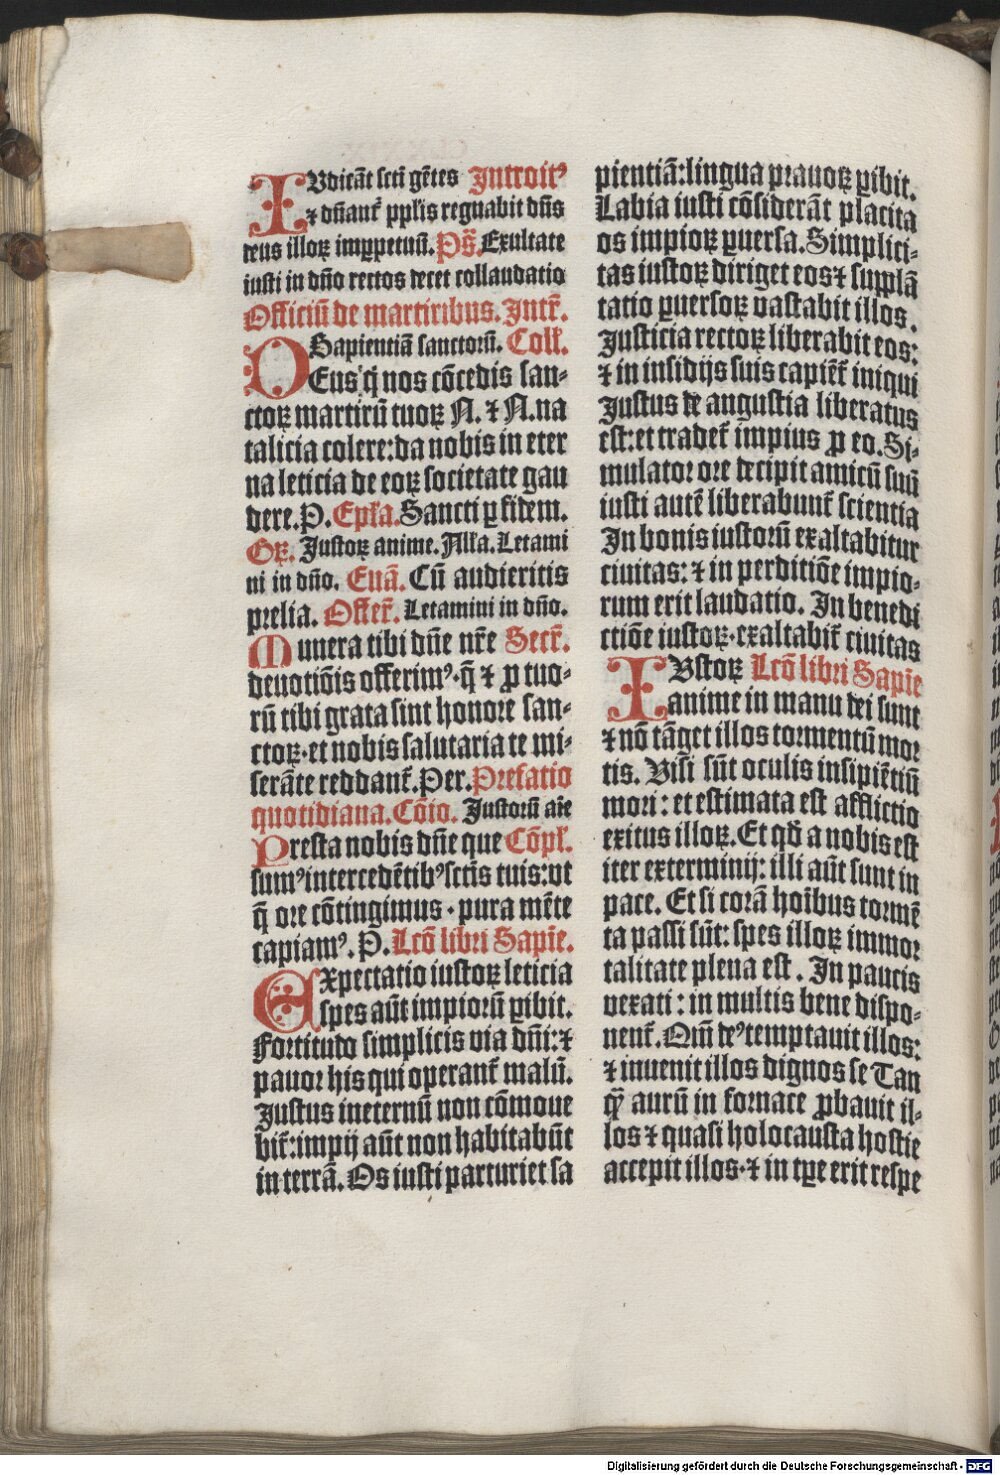 IVdicãt scti gẽtes Introitꝰ
⁊ dñant᷑ pplis regnabit dñs
deus illoꝝ imꝑpetuũ. Ps̃. Exultate
iusti in dño rectos decet collaudatio
Officiũ de martiribus. Intr̃.
Sapientiã sanctorũ. Coll̃.
DEus q̇ nos cõcedis san⸗
ctoꝝ martirũ tuoꝝ N. ⁊ N. na
talicia colere: da nobis in eter
na leticia de eoꝝ societate gau
dere. P. Epl̃a. Sancti ꝑ fidem.
Gꝝ. Iustoꝝ anime. All̃a. Letami
ni in dño. Euã. Cũ audieritis
prelia. Offer̃. Letamini in dño.
Munera tibi dñe nr̃e Secr̃.
deuotiõis offerimꝰ· q̃ ⁊ ꝓ tuo⸗
rũ tibi grata sint honore san⸗
ctoꝝ· et nobis salutaria te mi⸗
serãte reddant᷑. Per. Prefatio
quotidiana. Cõio. Iustorũ aĩe
Presta nobis dñe que Cõpl̃.
sumꝰ intercedẽtibꝰ sctĩs tuis: vt
q̃ ore cõtingimus · pura mẽte
capiamꝰ. P. Lcõ libri Sapiẽ.
EXpectatio iustoꝝ leticia
spes aũt impiorũ ꝑibit.
Fortitudo simplicis via dñi: ⁊
pauor his qui operant᷑ malũ.
Iustus ineternũ non cõmoue
bit᷑: impij aũt non habitabũt
in terrã. Os iusti parturiet sa
pientiã: lingua prauoꝝ ꝑibit.
Labia iusti cõsiderãt placita
os impioꝝ ꝑuersa. Simplici⸗
tas iustoꝝ diriget eos ⁊ supplã
tatio ꝑuersoꝝ vastabit illos.
Iusticia rectoꝝ liberabit eos:
⁊ in insidijs suis capiẽt᷑ iniqui
Iustus de angustia liberatus
est: et tradet᷑ impius ꝓ eo. Si⸗
mulator ore decipit amicũ suũ
iusti autẽ liberabunt᷑ scientia
In bonis iustorũ exaltabitur
ciuitas: ⁊ in perditiõe impio⸗
rum erit laudatio. In benedi
ctiõe iustoꝝ· exaltabit᷑ ciuitas
IVstoꝝ Lcõ libri Sapiẽ
anime in manu dei sunt
⁊ nõ tãget illos tormentũ mor
tis. Visi sũt oculis insipiẽtiũ
mori: et estimata est afflictio
exitus illoꝝ. Et qď a nobis est
iter exterminij: illi aũt sunt in
pace. Et si corã hoĩbus tormẽ
ta passi sũt: spes illoꝝ immor
talitate plena est. In paucis
vexati: in multis bene dispo⸗
nent᷑. Qm̃ deꝰ temptauit illos:
⁊ inuenit illos dignos se Tan
q̃ʒ aurũ in fornace ꝓbauit il⸗
los ⁊ quasi holocausta hostie
accepit illos· ⁊ in tꝑe erit respe
Digitalisierung gefördert durch die Deutsche Forschungsgemeinschaft - DFG